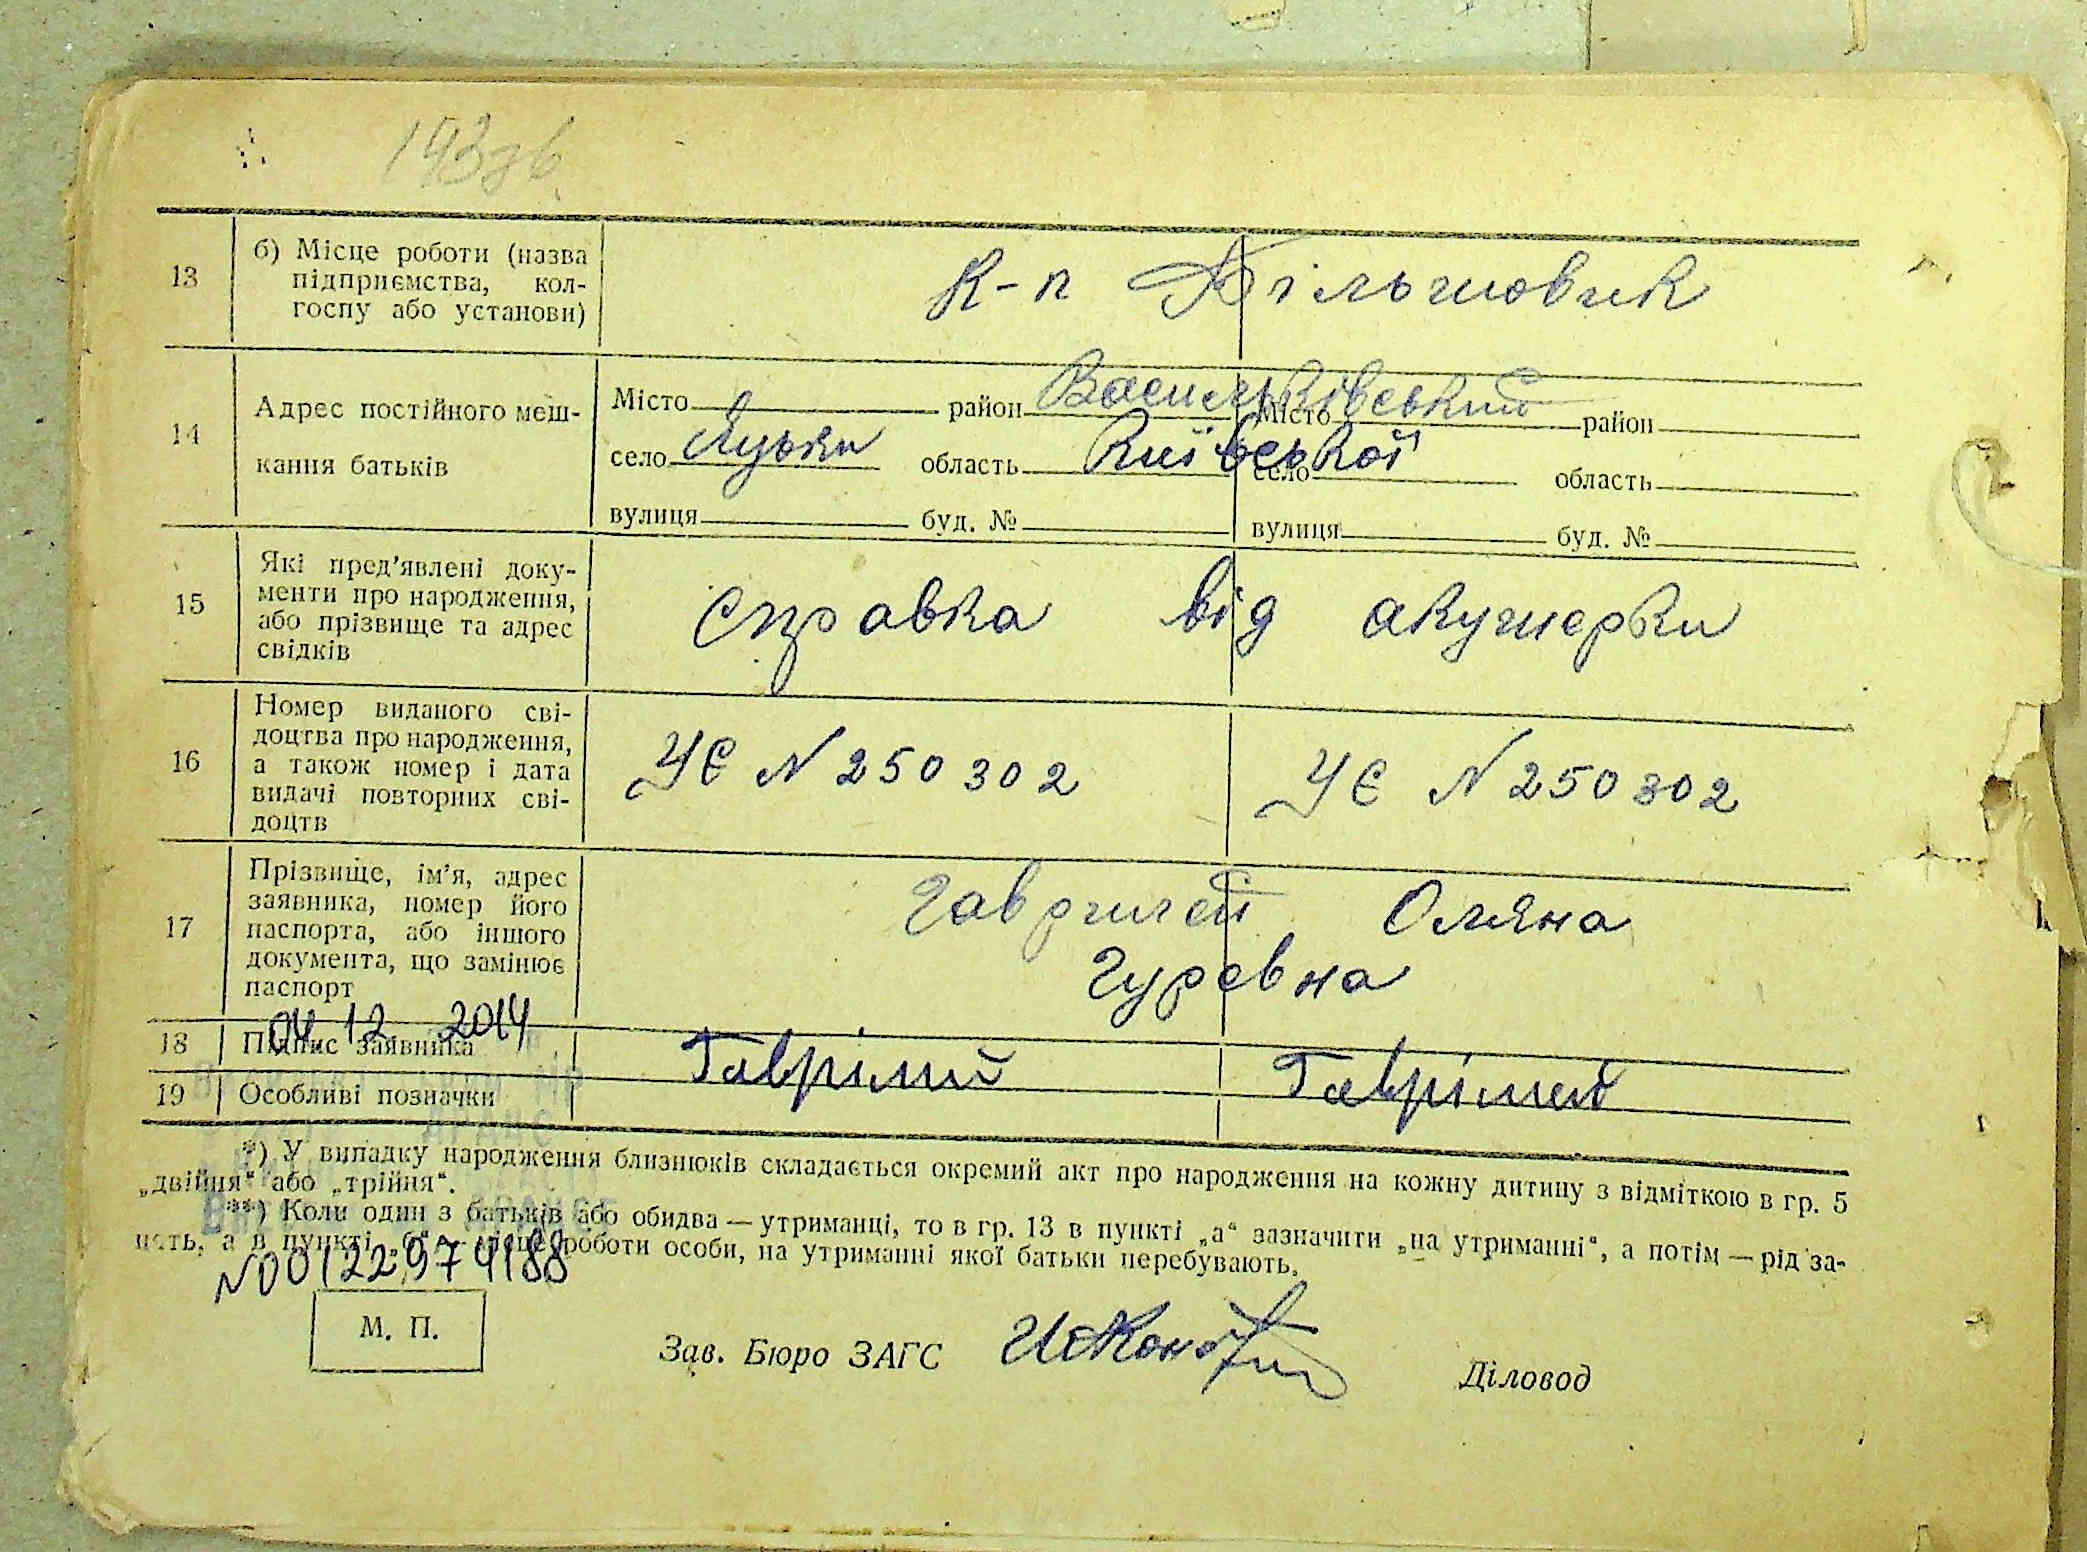 193зв
13
б) Місце роботи (назва
підприємства, кол-
госпу або установи)
к-п Більшовик
14
Адрес постійного меш-
кання батьків
Місто район Васильківський Місто район
село Яцьки область Київської село область
вулиця буд. № вулиця буд. №
15
Які пред’явлені доку-
менти про народження,
або прізвище та адрес
свідків
Справка від акушерки
16
Номер виданого сві-
доцтва про народження,
а також номер і дата
видачі повторних сві-
доцтв
УЄ N 250302 УЄ N 250302
17
Прізвище, ім’я, адрес
заявника, номер його
паспорта, або іншого
документа, що замінює
паспорт
Гаврилей Оляна
Гуревна
04.12.2014
18 Підпис заявника
19 Особливі позначки
*) У випадку народження близнюків складається окремий акт про народження на кожну дитину з відміткою в гр. 5
„двійня“ або „трійня“.
**) Коли один з батьків або обидва — утриманці, то в гр. 13 в пункті „а“ зазначити „на утриманні“, а потім — рід за-
нять, а в пункті „б“ — місце роботи особи, на утриманні якої батьки перебувають.
N00122974188
М. П.
Зав. Бюро ЗАГС
Діловод